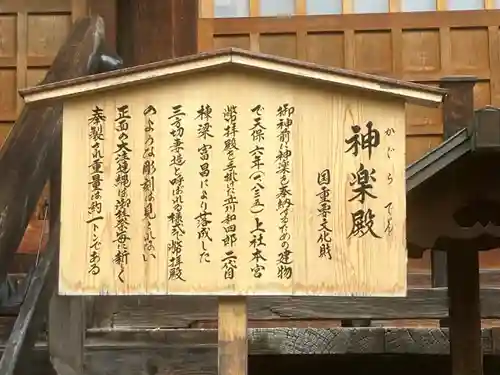 神楽殿
かぐらでん
国重要文化財
御神前に神楽を奉納するための建物
で天保六年(一八三五)上社本宮
幣拝殿を手掛けた立川和四郎二代目
棟梁富昌により落成した
三方切妻造と呼ばれる様式で幣拝殿
のような彫刻は見られない
正面の大注連縄は御柱祭毎に新しく
奉製され重量は約一トンである